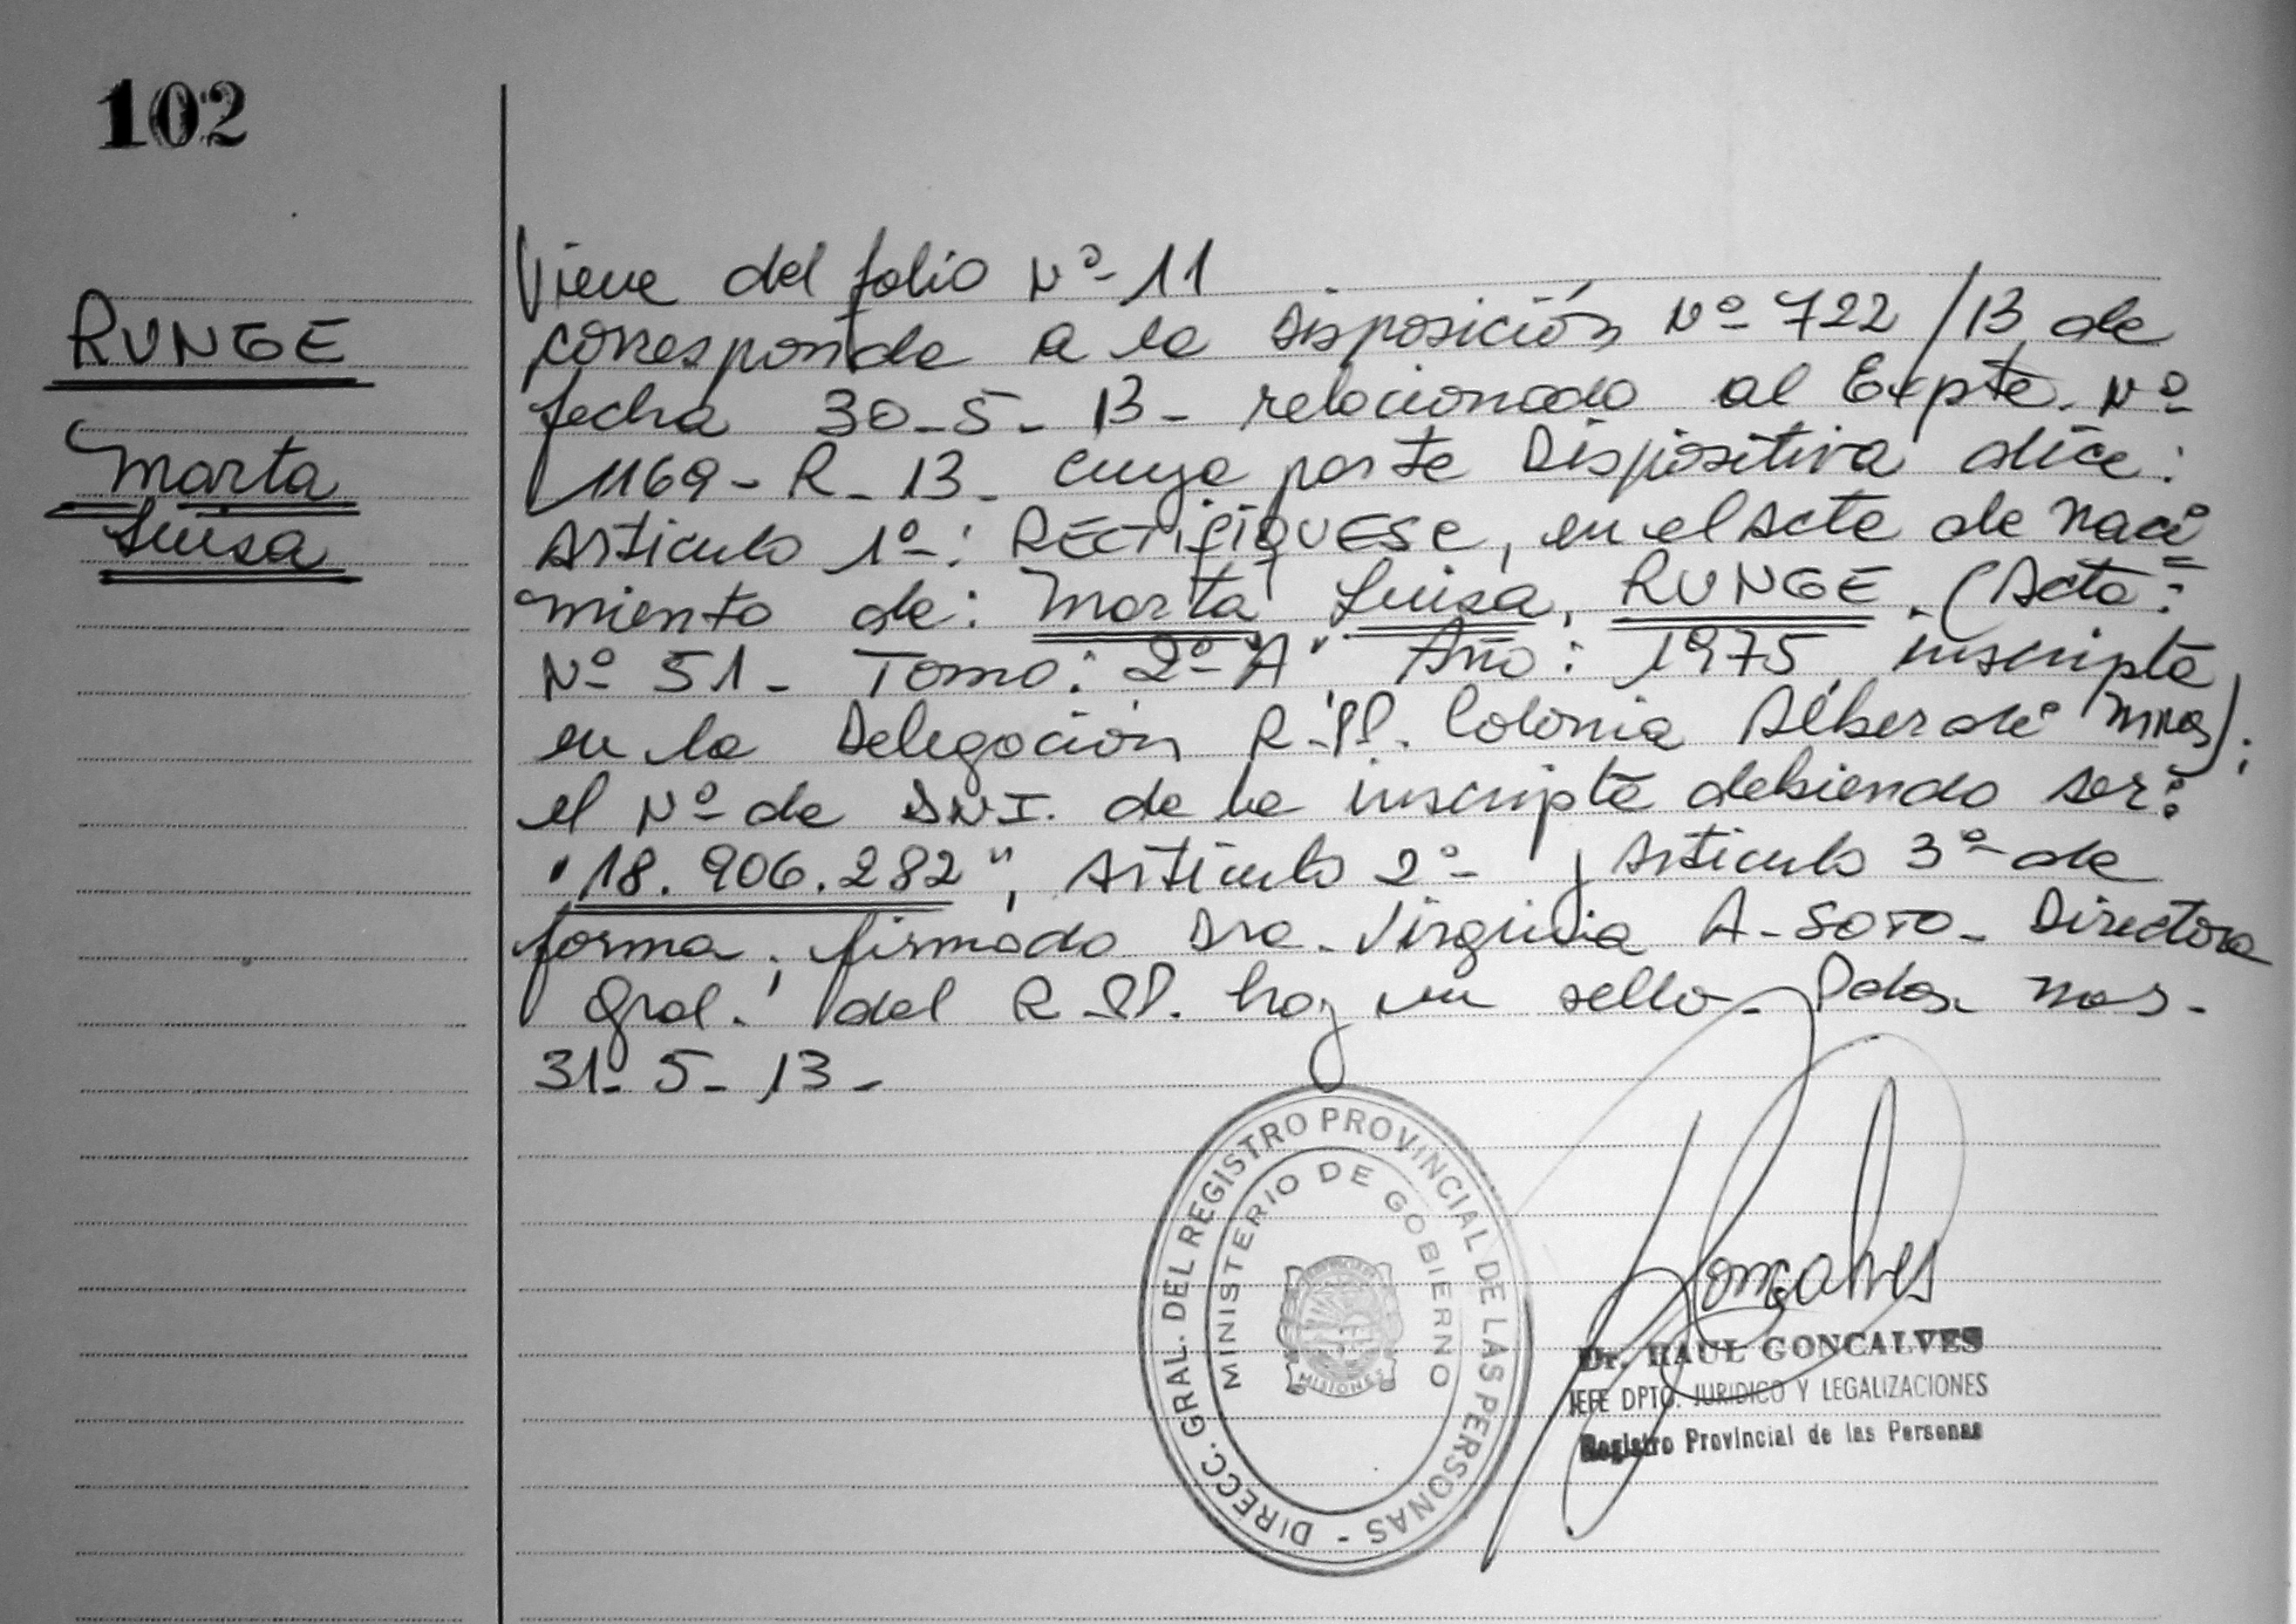 102
RUNGE
Marta
Luisa
Viene del folio Nº 11
corresponde a la Disposición Nº 722/13 de
fecha 30-5-13- relacionado al Expte. Nº
1169-R-13- cuya parte Dispositiva dice:
Artículo 1º: RECTIFIQUESE, en el Acta de naci
miento de: Marta Luisa, RUNGE. (Acta:
Nº 51- Tomo: 2º "A" Año: 1975, inscripta
en la Delegación R.PP. Colonia Alberdi Mnes);
el Nº de DNI. de la inscripta debiendo ser:
"18.906.282", Artículo 2º y Artículo 3º de
forma; firmado Dra. Virginia A- SOTO- Directora
Gral. del R.PP. hay un sello- Pdas. Mnes-
31-5-13-
DIRECC. GRAL. DEL REGISTRO PROVINCIAL DE LAS PERSONAS -
MINISTERIO DE GOBIERNO
MISIONES
Goncalves
Dr. RAUL GONCALVES
JEFE DPTO. JURIDICO Y LEGALIZACIONES
Registro Provincial de las Personas